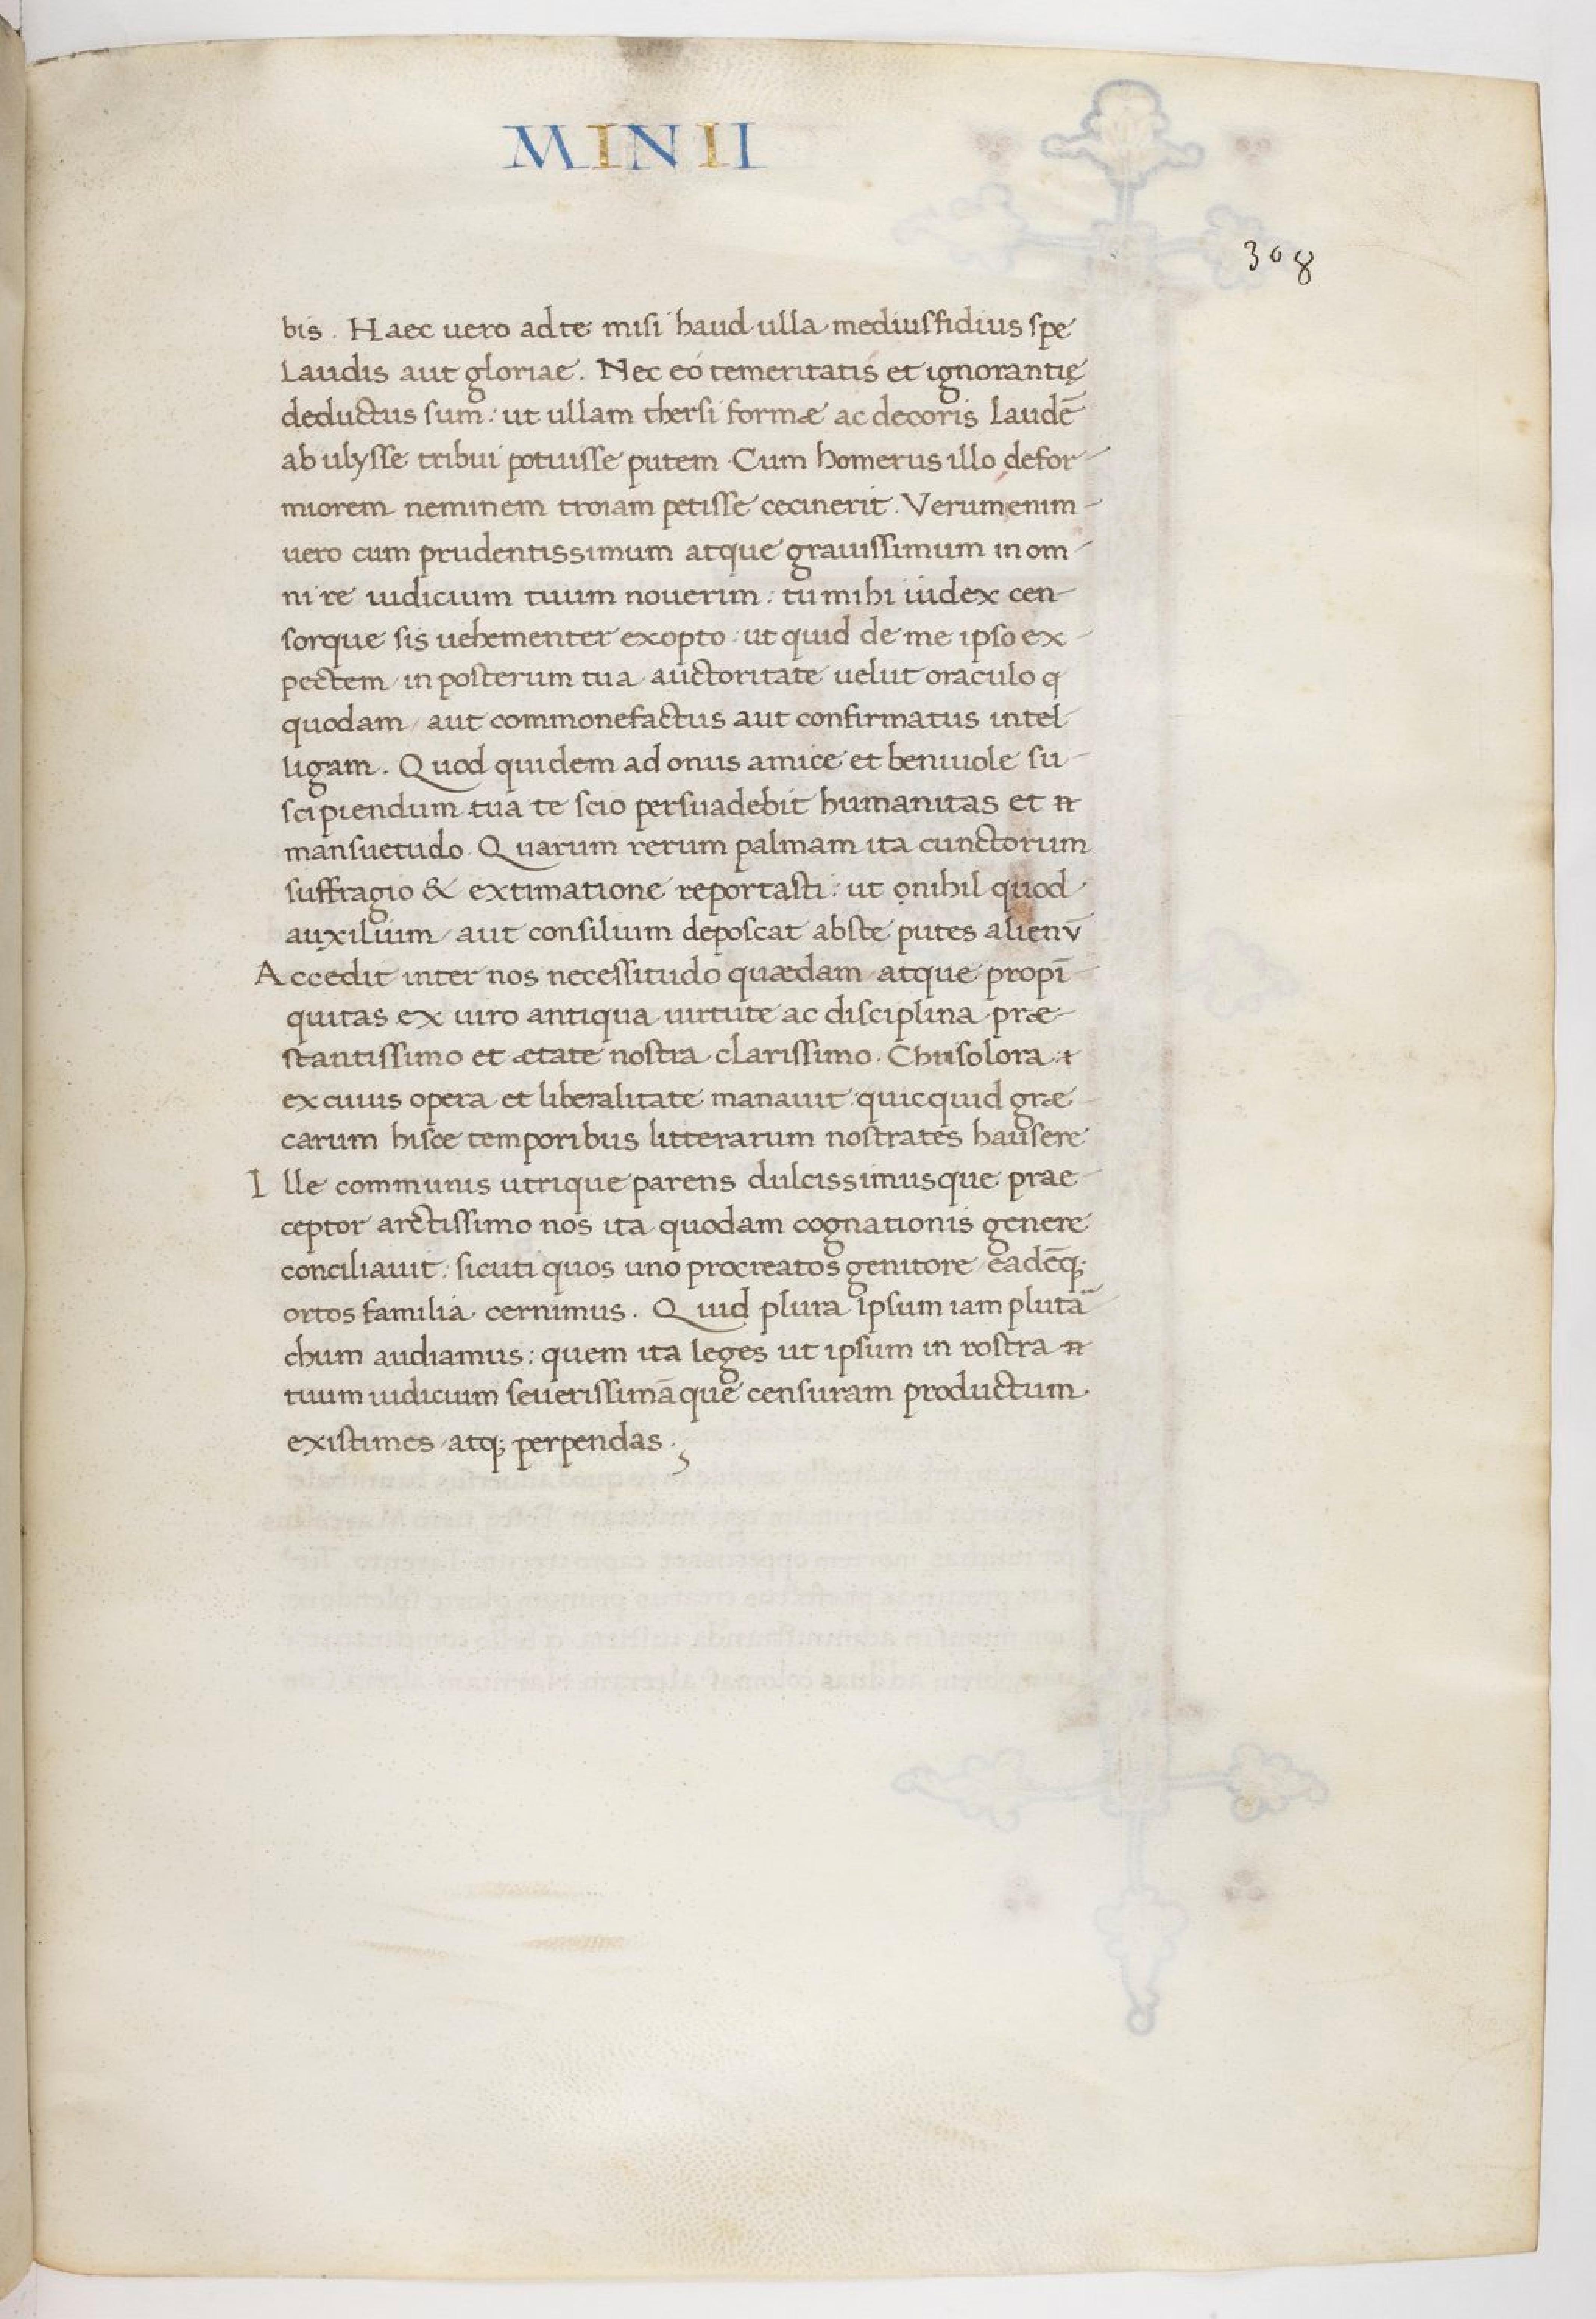 MINII
308
bis. Haec uero ad te misi haud ulla mediusfidius spe
laudis aut gloriae. Nec eo temeritatis et ignorantię
deductus sum: ut ullam thersi formæ ac decoris laudē
ab ulysse tribui potuisse putem. Cum homerus illo defor-
miorem neminem troiam petisse cecinerit. Verumenim-
uero cum prudentissimum atque grauissimum in om-
ni re iudicium tuum nouerim: tu mihi iudex cen-
sorque sis uehementer exopto: ut quid de me ipso ex-
pectem in posterum tua auctoritate uelut oraculo q
quodam / aut commonefactus aut confirmatus intel-
ligam. Quod quidem ad onus amice et beniuole su-
scipiendum tua te scio persuadebit humanitas et
mansuetudo. Quarum rerum palmam ita cunctorum
suffragio & extimatione reportasti: ut onihil quod
auxilium / aut consilium deposcat abste putes alienū
Accedit inter nos necessitudo quædam atque propī-
quitas ex uiro antiqua uirtute ac disciplina præ-
stantissimo et ætate nostra clarissimo. Chrisolora
ex cuius opera et liberalitate manauit quicquid græ-
carum hisce temporibus litterarum nostrates hausere
Ille communis utrique parens dulcissimusque prae-
ceptor arctissimo nos ita quodam cognationis genere
conciliauit: sicuti quos uno procreatos genitore eadēq;
ortos familia cernimus. Quid plura ipsum iam pluta-
chum audiamus: quem ita leges ut ipsum in rostra
tuum iudicium seuerissimāque censuram productum
existimes / atq; perpendas.